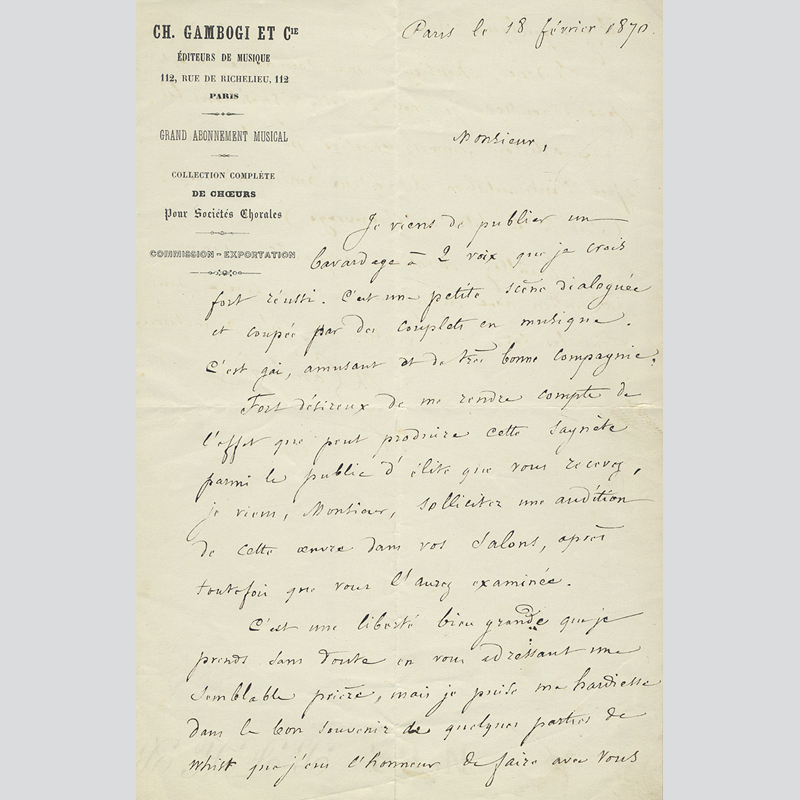 CH. GAMBOGI ET Cie
ÉDITEURS DE MUSIQUE
112, RUE DE RICHELIEU, 112
PARIS
GRAND ABONNEMENT MUSICAL
COLLECTION COMPLÈTE
DE CHŒURS
Pour Sociétés Chorales
COMMISSION - EXPORTATION
Paris le 18 février 1870.
Monsieur,
Je viens de publier un
bavardage à 2 voix que je crois
fort réussi. C'est une petite scène dialoguée
et coupée par des couplets en musique.
C'est gai, amusant et de très bonne compagnie.
Fort désireux de me rendre compte de
l'effet que peut produire cette saynète
parmi le public d'élite que vous recevez,
je viens, Monsieur, solliciter une audition
de cette œuvre dans vos salons, après
toutefois que vous l'aurez examinée.
C'est une liberté bien grande que je
prends sans doute en vous adressant une
semblable prière, mais je puise ma hardiesse
dans le bon souvenir de quelques parties de
whist que j'eus l'honneur de faire avec vous